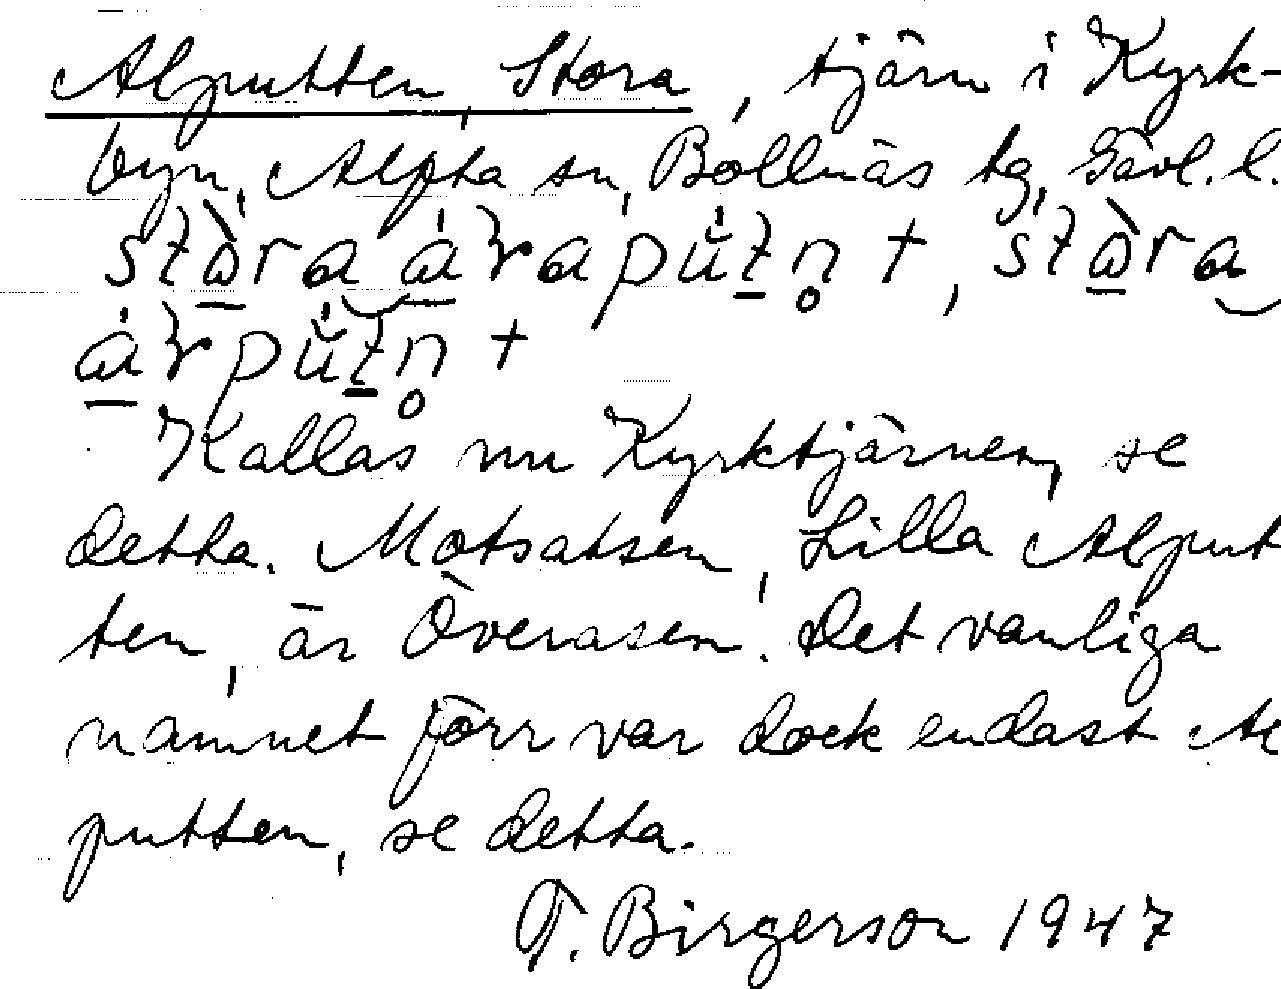 Alputten, Stora, tjärn i Kyrk-
byn, Alfta sn, Bollnäs tg, Gävl. l.
Kallas nu Kyrktjärnen, se
detta. Motsatsen, Lilla Alput
ten, är Överasen. Det vanliga
namnet förr var dock endast Al
putten, se detta.
T. Birgerson 1947